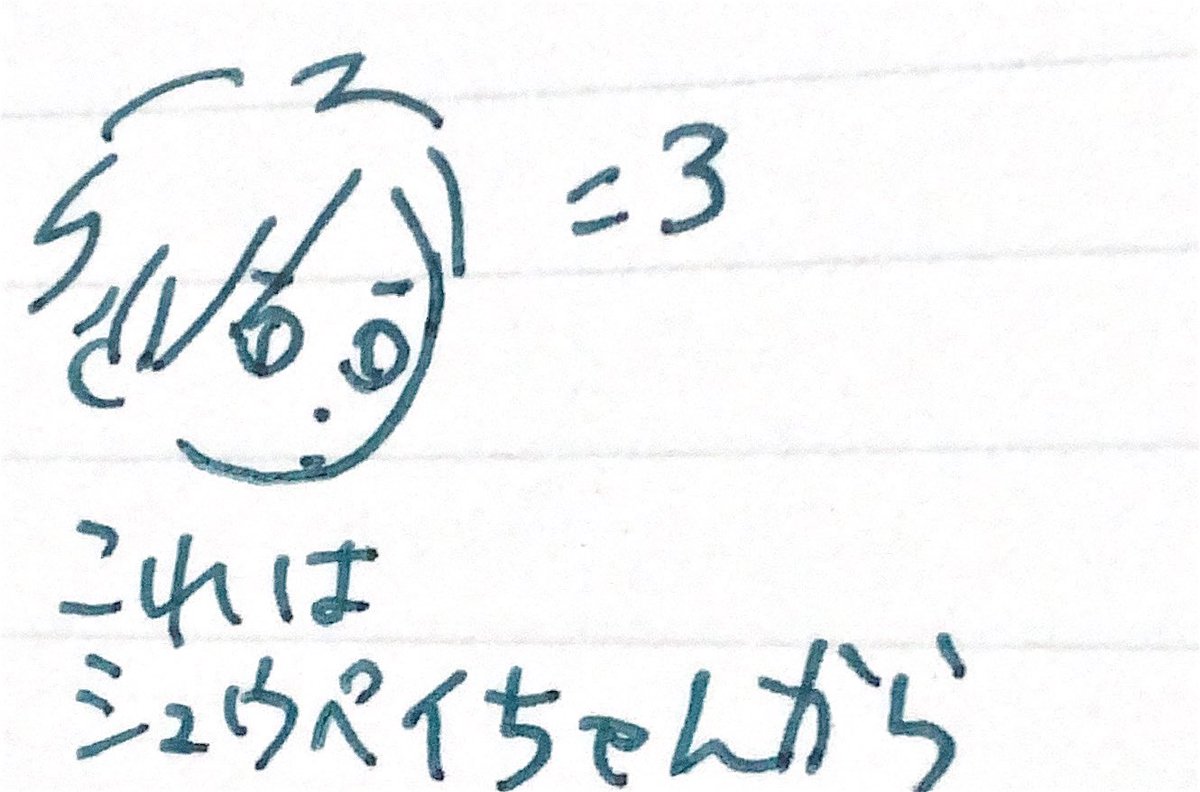 =3
これは
ミュウペイちゃんがら